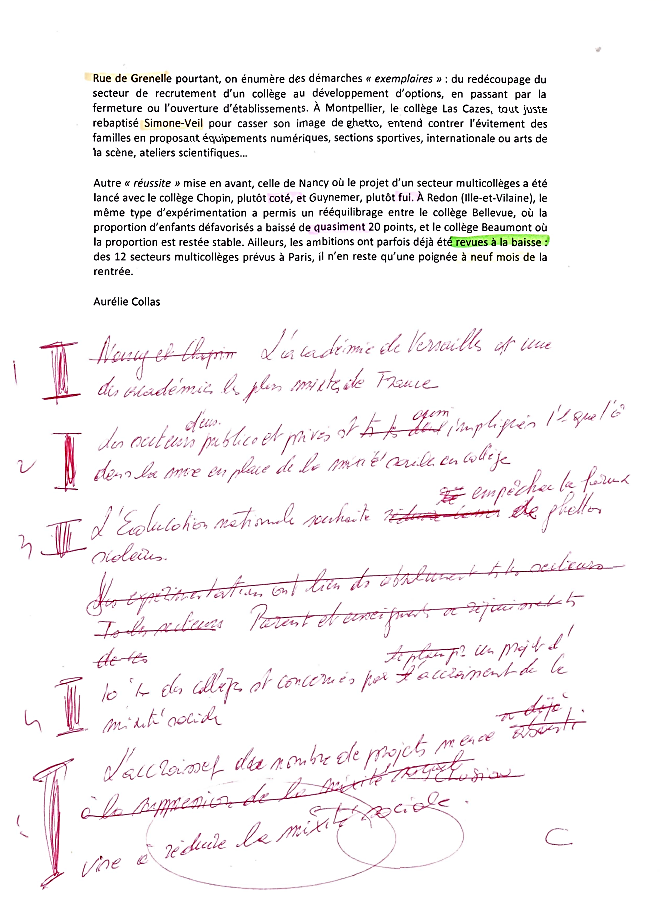 Rue de Grenelle pourtant, on énumère des démarches « exemplaires » : du redécoupage du
secteur de recrutement d'un collège au développement d'options, en passant par la
fermeture ou l'ouverture d'établissements. À Montpellier, le collège Las Cazes, tout juste
rebaptisé Simone-Veil pour casser son image de ghetto, entend contrer l'évitement des
familles en proposant équipements numériques, sections sportives, internationale ou arts de
la scène, ateliers scientifiques...
Autre « réussite » mise en avant, celle de Nancy où le projet d'un secteur multicollèges a été
lancé avec le collège Chopin, plutôt coté, et Guynemer, plutôt ful. À Redon (Ille-et-Vilaine), le
même type d'expérimentation a permis un rééquilibrage entre le collège Bellevue, où la
proportion d'enfants défavorisés a baissé de quasiment 20 points, et le collège Beaumont où
la proportion est restée stable. Ailleurs, les ambitions ont parfois déjà été revues à la baisse :
des 12 secteurs multicollèges prévus à Paris, il n'en reste qu'une poignée à neuf mois de la
rentrée.
Aurélie Collas
1 Nancy et Chopin L'académie de Versailles est une
des académies les plus mixtes de France
2 Les secteurs publics et privés st impliqués
dans la mise en place de la mixité sociale en collège
3 L'Education nationale souhaite empêcher la
de ghettos
scolaires.
Des expérimentations ont lieu ds absolument ts les secteurs
Ts les secteurs Parent et enseignants
de ces
un projet d'
4 des collèges st concernés par l'accroissement de la
mixité sociale
a déjà
L'accroisset du nombre de projets mence abouti
à la suppression de la mixité
vise à réduire la mixité sociale.
C